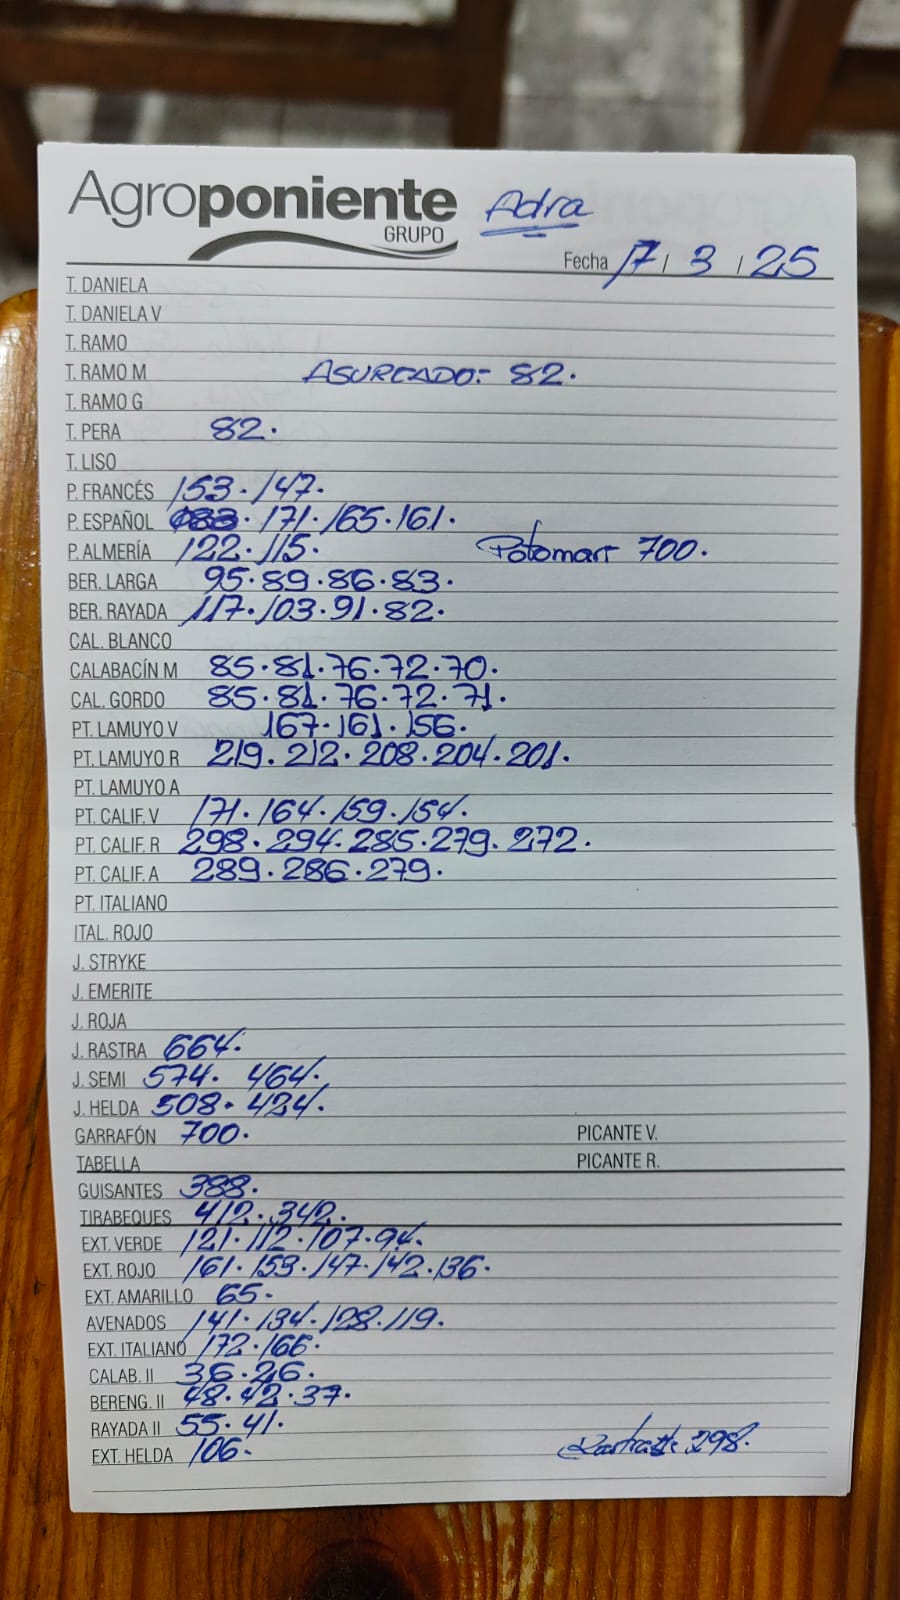 Agroponiente Adra
GRUPO
Fecha 17/ 3 / 25
T. DANIELA
T. DANIELA V
T. RAMO
T. RAMO M ASURCADO:- 82.
T. RAMO G
T. PERA 82.
T. LISO
P. FRANCÉS 153. 147.
P. ESPAÑOL . 171. 165. 161.
P. ALMERÍA 122. 115. 700.
BER. LARGA 95. 89. 86. 83.
BER. RAYADA 117. 103. 91. 82.
CAL. BLANCO
CALABACÍN M 85. 81. 76. 72. 70.
CAL. GORDO 85. 81. 76. 72. 71.
PT. LAMUYO V 167. 161. 156.
PT. LAMUYO R 219. 212. 208. 204. 201.
PT. LAMUYO A
PT. CALIF. V 171. 164. 159. 154.
PT. CALIF. R 298. 294. 285. 279. 272.
PT. CALIF. A 289. 286. 279.
PT. ITALIANO
ITAL. ROJO
J. STRYKE
J. EMERITE
J. ROJA
J. RASTRA 664.
J. SEMI 574. 464.
J. HELDA 508. 424.
GARRAFÓN 700. PICANTE V.
TABELLA PICANTE R.
GUISANTES 388.
TIRABEQUES 412. 342.
EXT. VERDE 121. 112. 107. 94.
EXT. ROJO 161. 153. 147. 142. 136.
EXT. AMARILLO 65.
AVENADOS 141. 134. 128. 119.
EXT. ITALIANO 172. 166.
CALAB. II 36. 26.
BERENG. II 48. 42. 37.
RAYADA II 55. 41.
EXT. HELDA 106. 298.